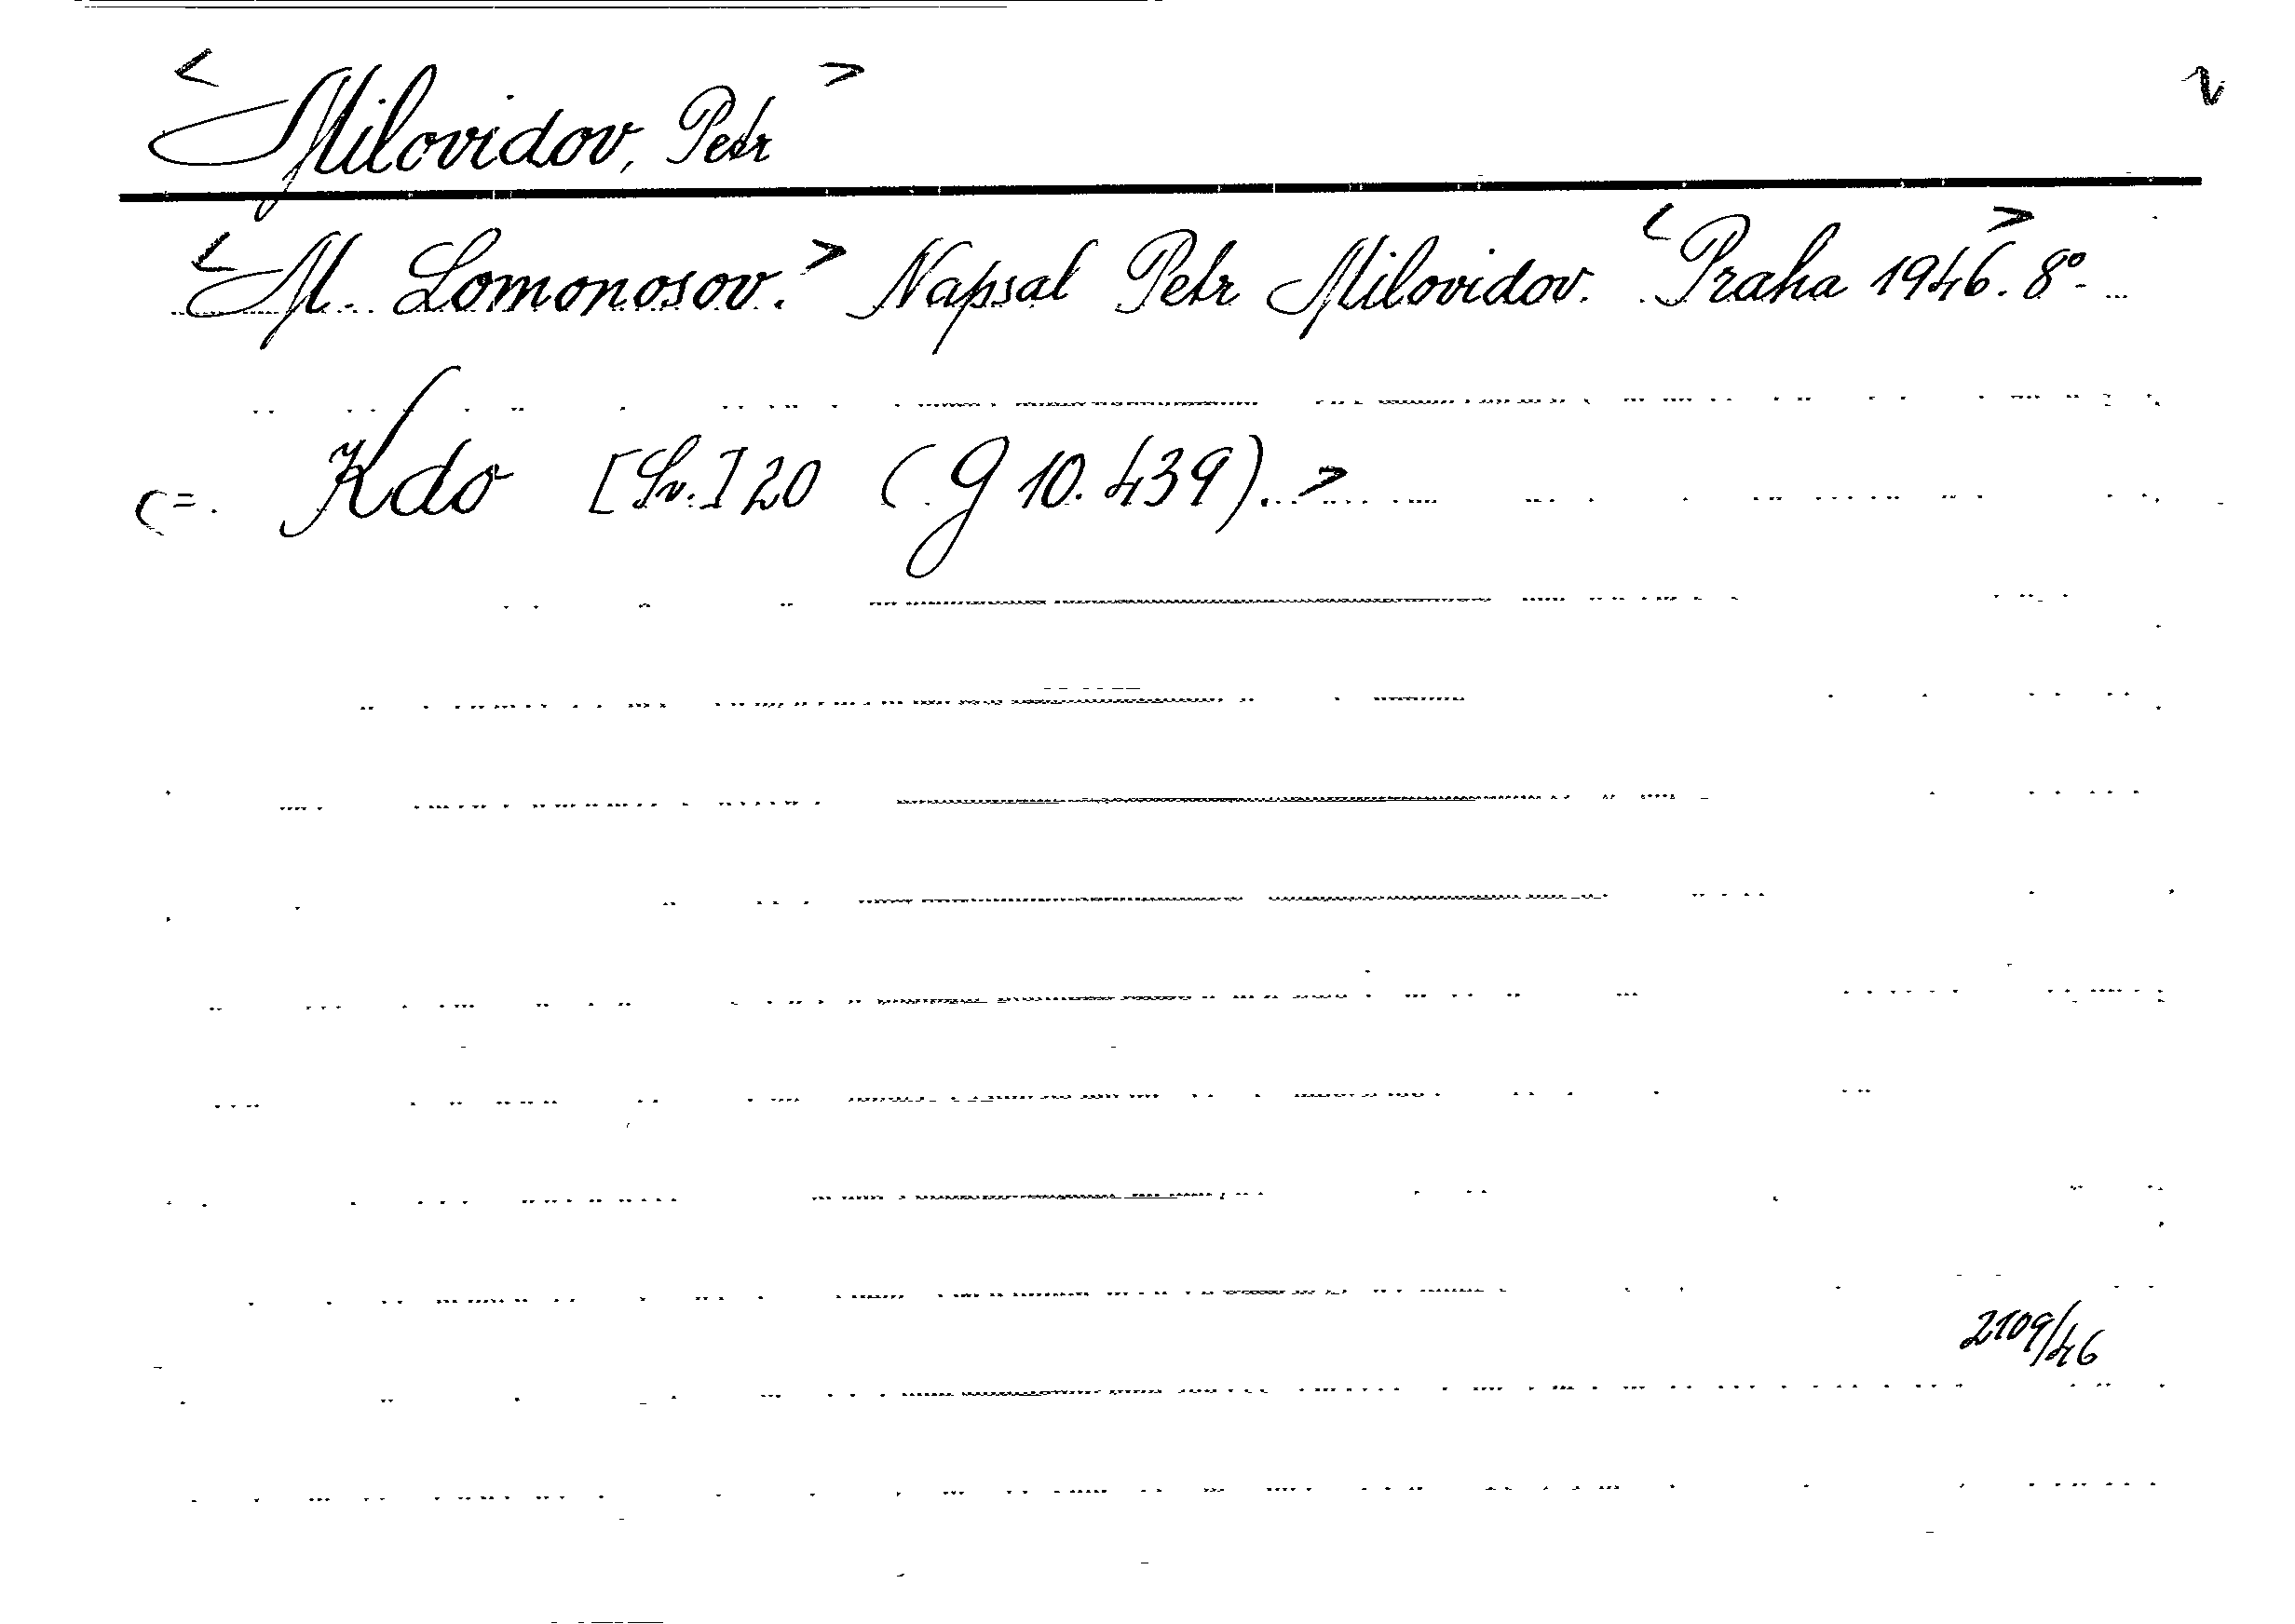 <Milovidov, Petr>
<M. Lomonosov.> Napsal Petr Milovidov. <Praha 1946.> 8°.
<=. Kdo [Sv.] 20 (g 10.439).>
2109/46